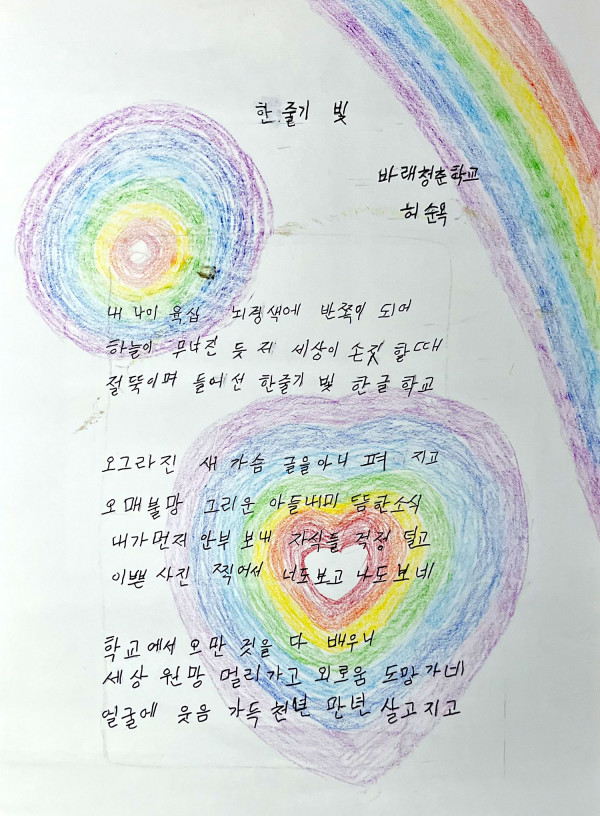 한 줄기 빛
바래청춘학교
허순옥
내 나이 육십 뇌경색에 반쪽이 되어
하늘이 무너진 듯 제 세상이 손짓 할때
절뚝이며 들어선 한줄기 빛 한글학교
오그라진 새 가슴 글을아니 펴 지고
오매불망 그리운 아들내미 뜸한소식
내가먼저 안부 보내 자식들 걱정 덜고
이쁜 사진 찍어서 너도보고 나도보네
학교에서 오만 것을 다 배우니
세상 원망 멀리가고 외로움 도망가네
얼굴에 웃음 가득 천년 만년 살고지고